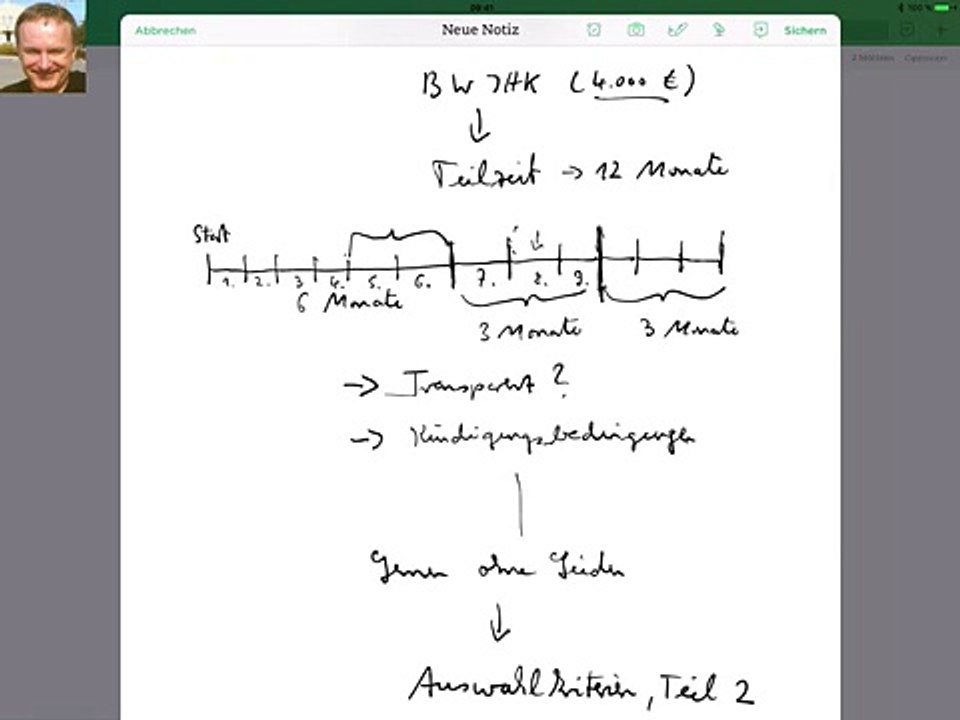 09:41
100 %
Abbrechen
Neue Notiz
Sichern
2 Notizen
Optionen
BW IHK (4.000 €)
Teilzeit → 12 Monate
Start
1. 2. 3 4. 5. 6. 7. 8. 9.
6 Monate
3 Monate
3 Monate
→ Transparent?
→ Kündigungsbedingungen
Lernen ohne Leiden
Auswahlkriterien, Teil 2